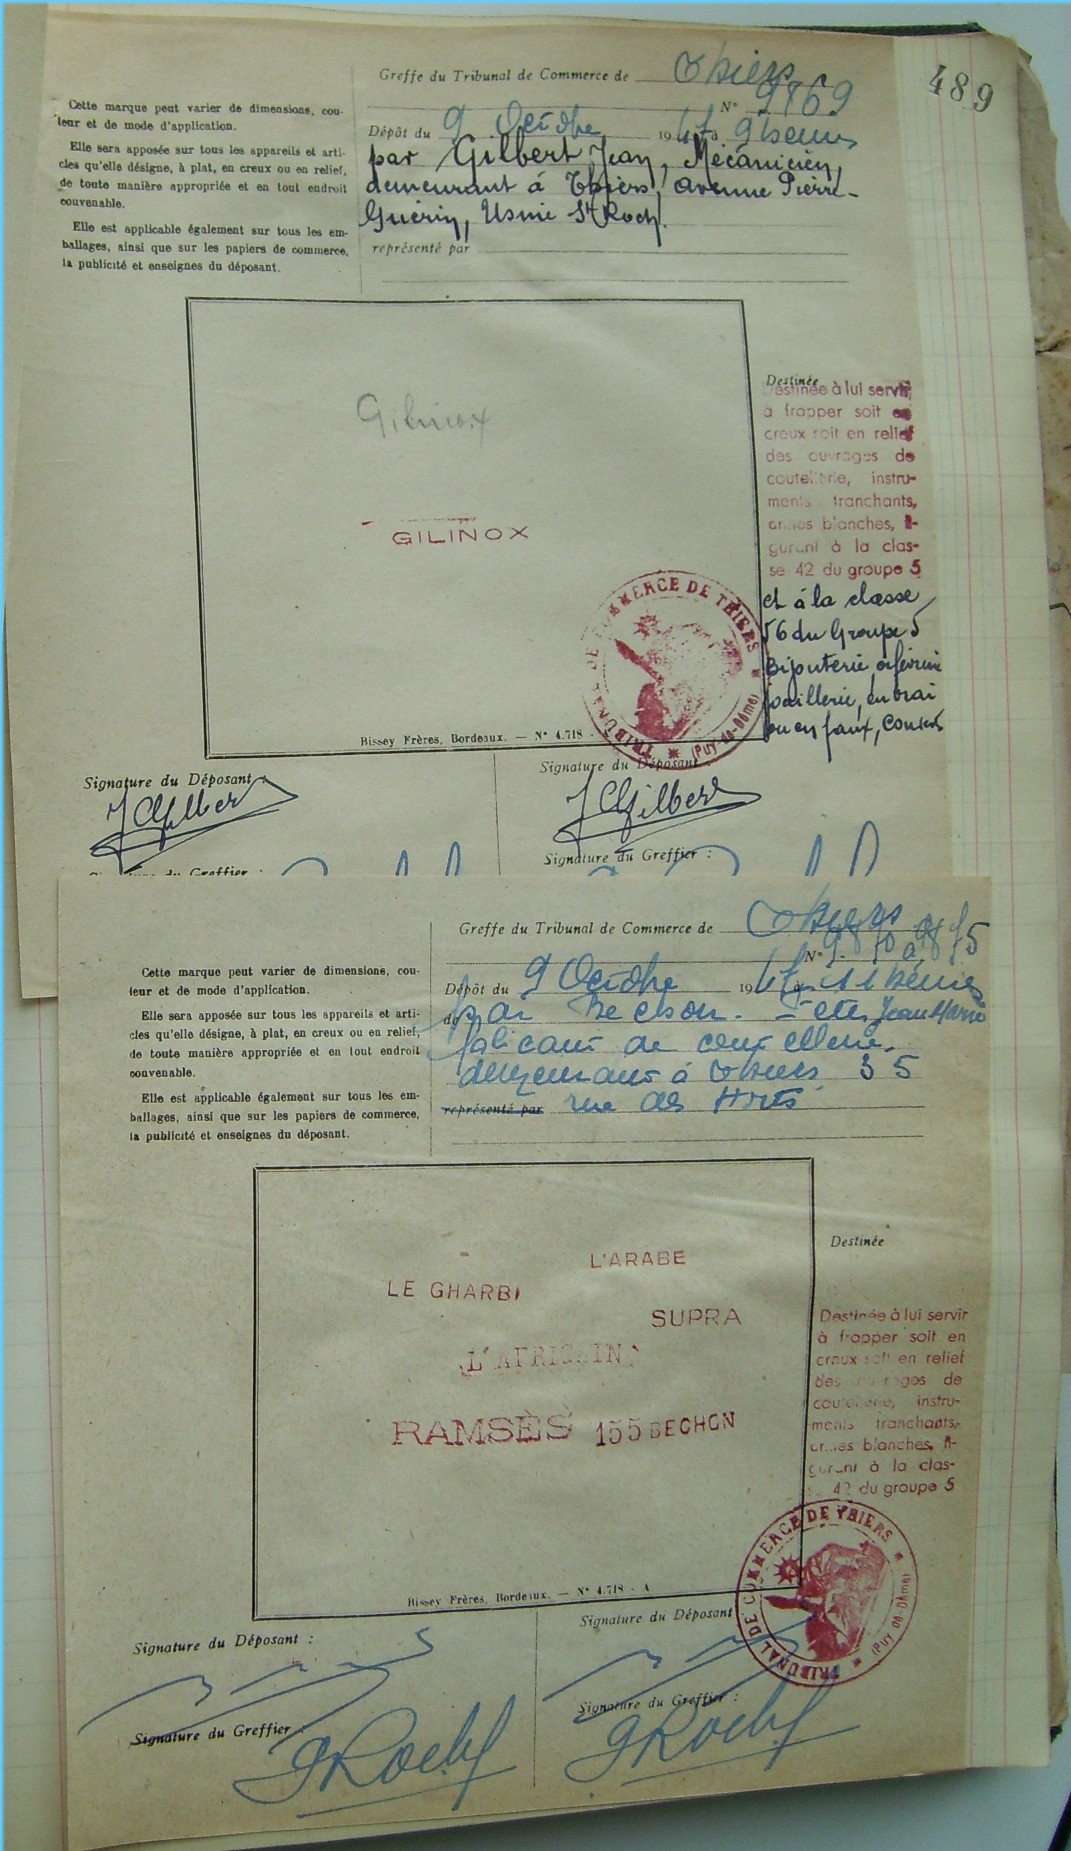 489
Greffe du Tribunal de Commerce de Thiers
N° 9869
Cette marque peut varier de dimensions, cou-
leur et de mode d'application.
Elle sera apposée sur tous les appareils et arti-
cles qu'elle désigne, à plat, en creux ou en relief,
de toute manière appropriée et en tout endroit
convenable.
Elle est applicable également sur tous les em-
ballages, ainsi que sur les papiers de commerce,
la publicité et enseignes du déposant.
Dépôt du 9 Octobre 1947 à 9 heures
par Gilbert Jean, Mécanicien,
demeurant à Thiers, avenue Pierre-
Guérin, Usine St Roch.
représenté par
Gilinox
GILINOX
Destinée
Destinée à lui servir
à frapper soit en
creux soit en relief
des ouvrages de
coutellerie, instru-
ments tranchants,
armes blanches, fi-
gurant à la clas-
se 42 du groupe 5
et à la classe
56 du Groupe 5
Bijouterie, orfèvrerie
joaillerie, en vrai
ou en faux, couverts
TRIBUNAL DE COMMERCE DE THIERS
(PUY-de-Dôme)
Bissey Frères, Bordeaux. — N° 4.718 -
Signature du Déposant :
Signature du Déposant :
J Gilbert
J Gilbert
Signature du Greffier :
Signature du Greffier :
Greffe du Tribunal de Commerce de Thiers
N° 9870 à 9875
Cette marque peut varier de dimensions, cou-
leur et de mode d'application.
Elle sera apposée sur tous les appareils et arti-
cles qu'elle désigne, à plat, en creux ou en relief,
de toute manière appropriée et en tout endroit
convenable.
Elle est applicable également sur tous les em-
ballages, ainsi que sur les papiers de commerce,
la publicité et enseignes du déposant.
Dépôt du 9 Octobre 1947 à 11 heures
de par Bechon- Jean Marie
fabricant de coutellerie,
demeurant à Thiers 35
représenté par rue des Horts
L'ARABE
LE GHARBI
SUPRA
L'AFRICAIN
RAMSÈS 155 BECHON
Destinée
Destinée à lui servir
à frapper soit en
creux soit en relief
des ouvrages de
coutellerie, instru-
ments tranchants,
armes blanches, fi-
gurant à la clas-
se 42 du groupe 5
TRIBUNAL DE COMMERCE DE THIERS
(PUY-de-Dôme)
Bissey Frères, Bordeaux. — N° 4.718 - A
Signature du Déposant :
Signature du Déposant
Signature du Greffier :
Signature du Greffier :